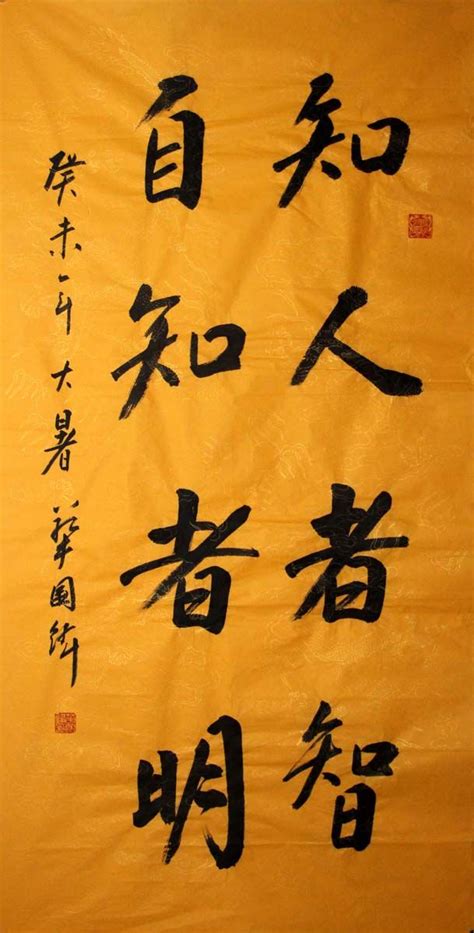 知人者智
自知者明
癸未年大暑 国纬